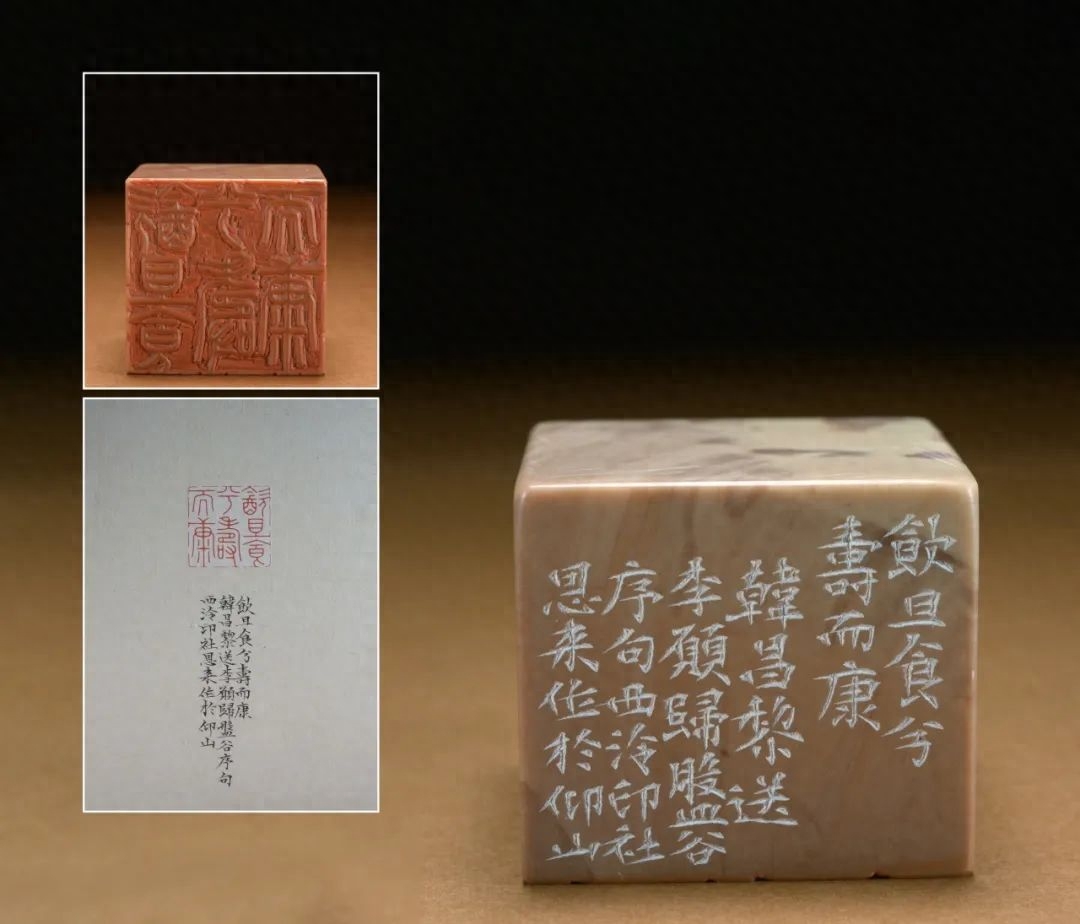 飲且食
兮壽
而康
飲且食
兮壽
而康
飲且食兮壽而康
韓昌黎送李願歸盤谷序句
西泠印社思来作於仰山
飲且食兮
壽而康
韓昌黎送
李願歸盤谷
序句西泠印社
思来作於仰山